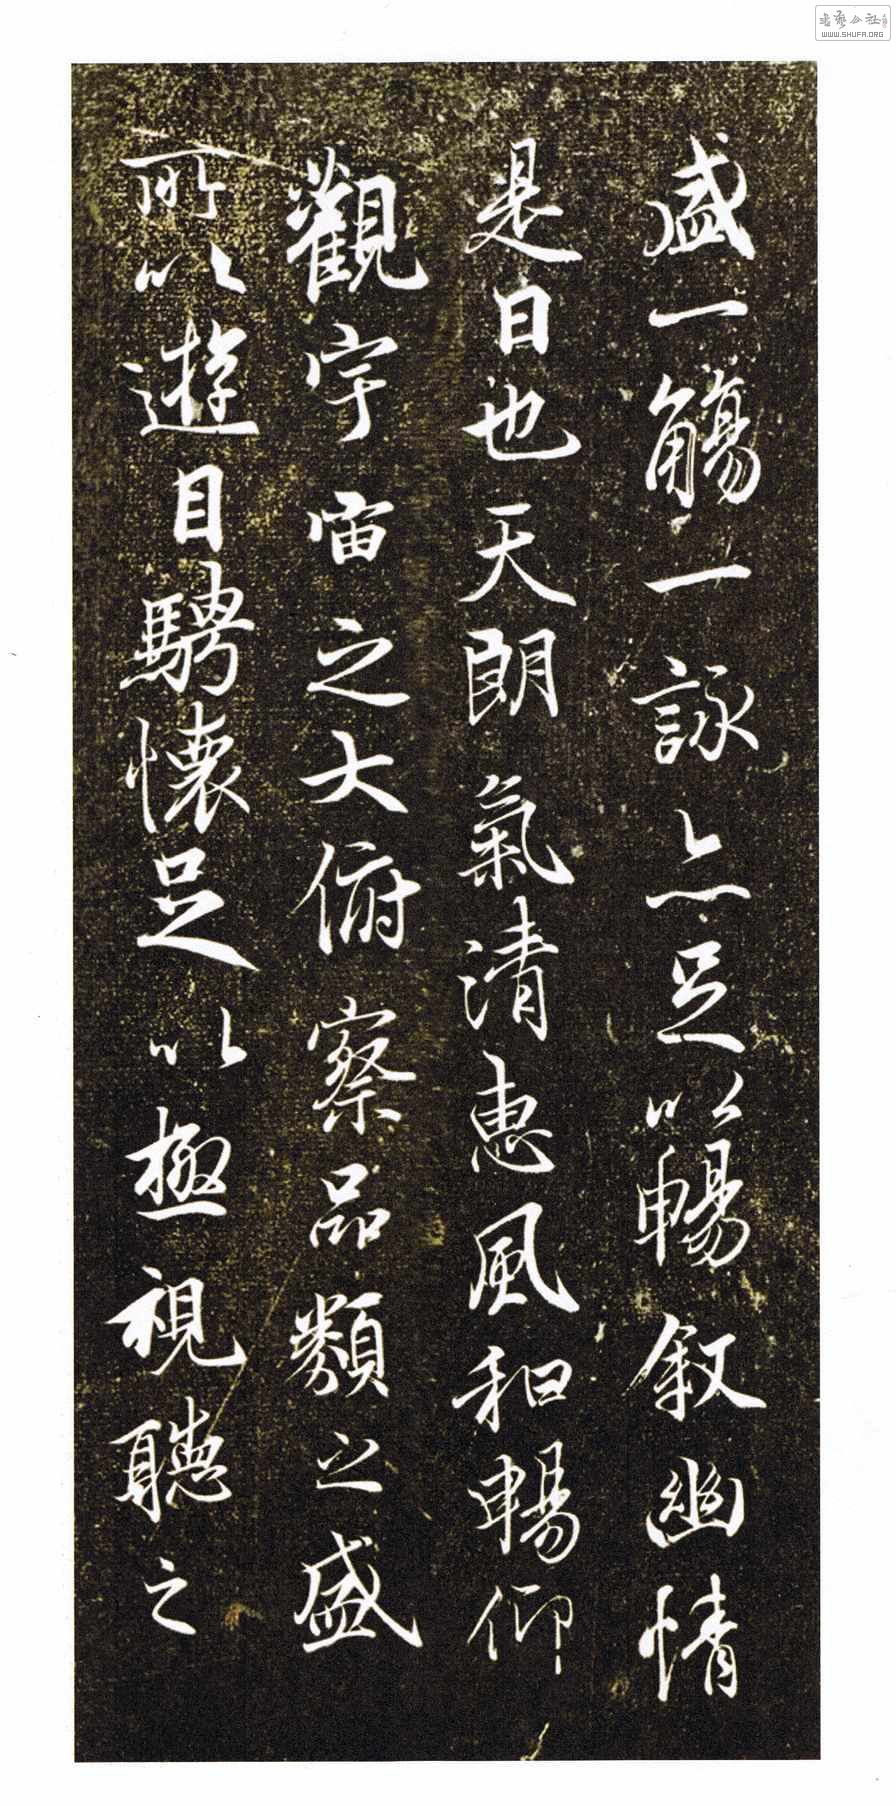 盛一觴一詠亦足以暢敘幽情
是日也天朗氣清惠風和暢仰
觀宇宙之大俯察品類之盛
所以遊目騁懷足以極視聽之
WWW.SHUFA.ORG